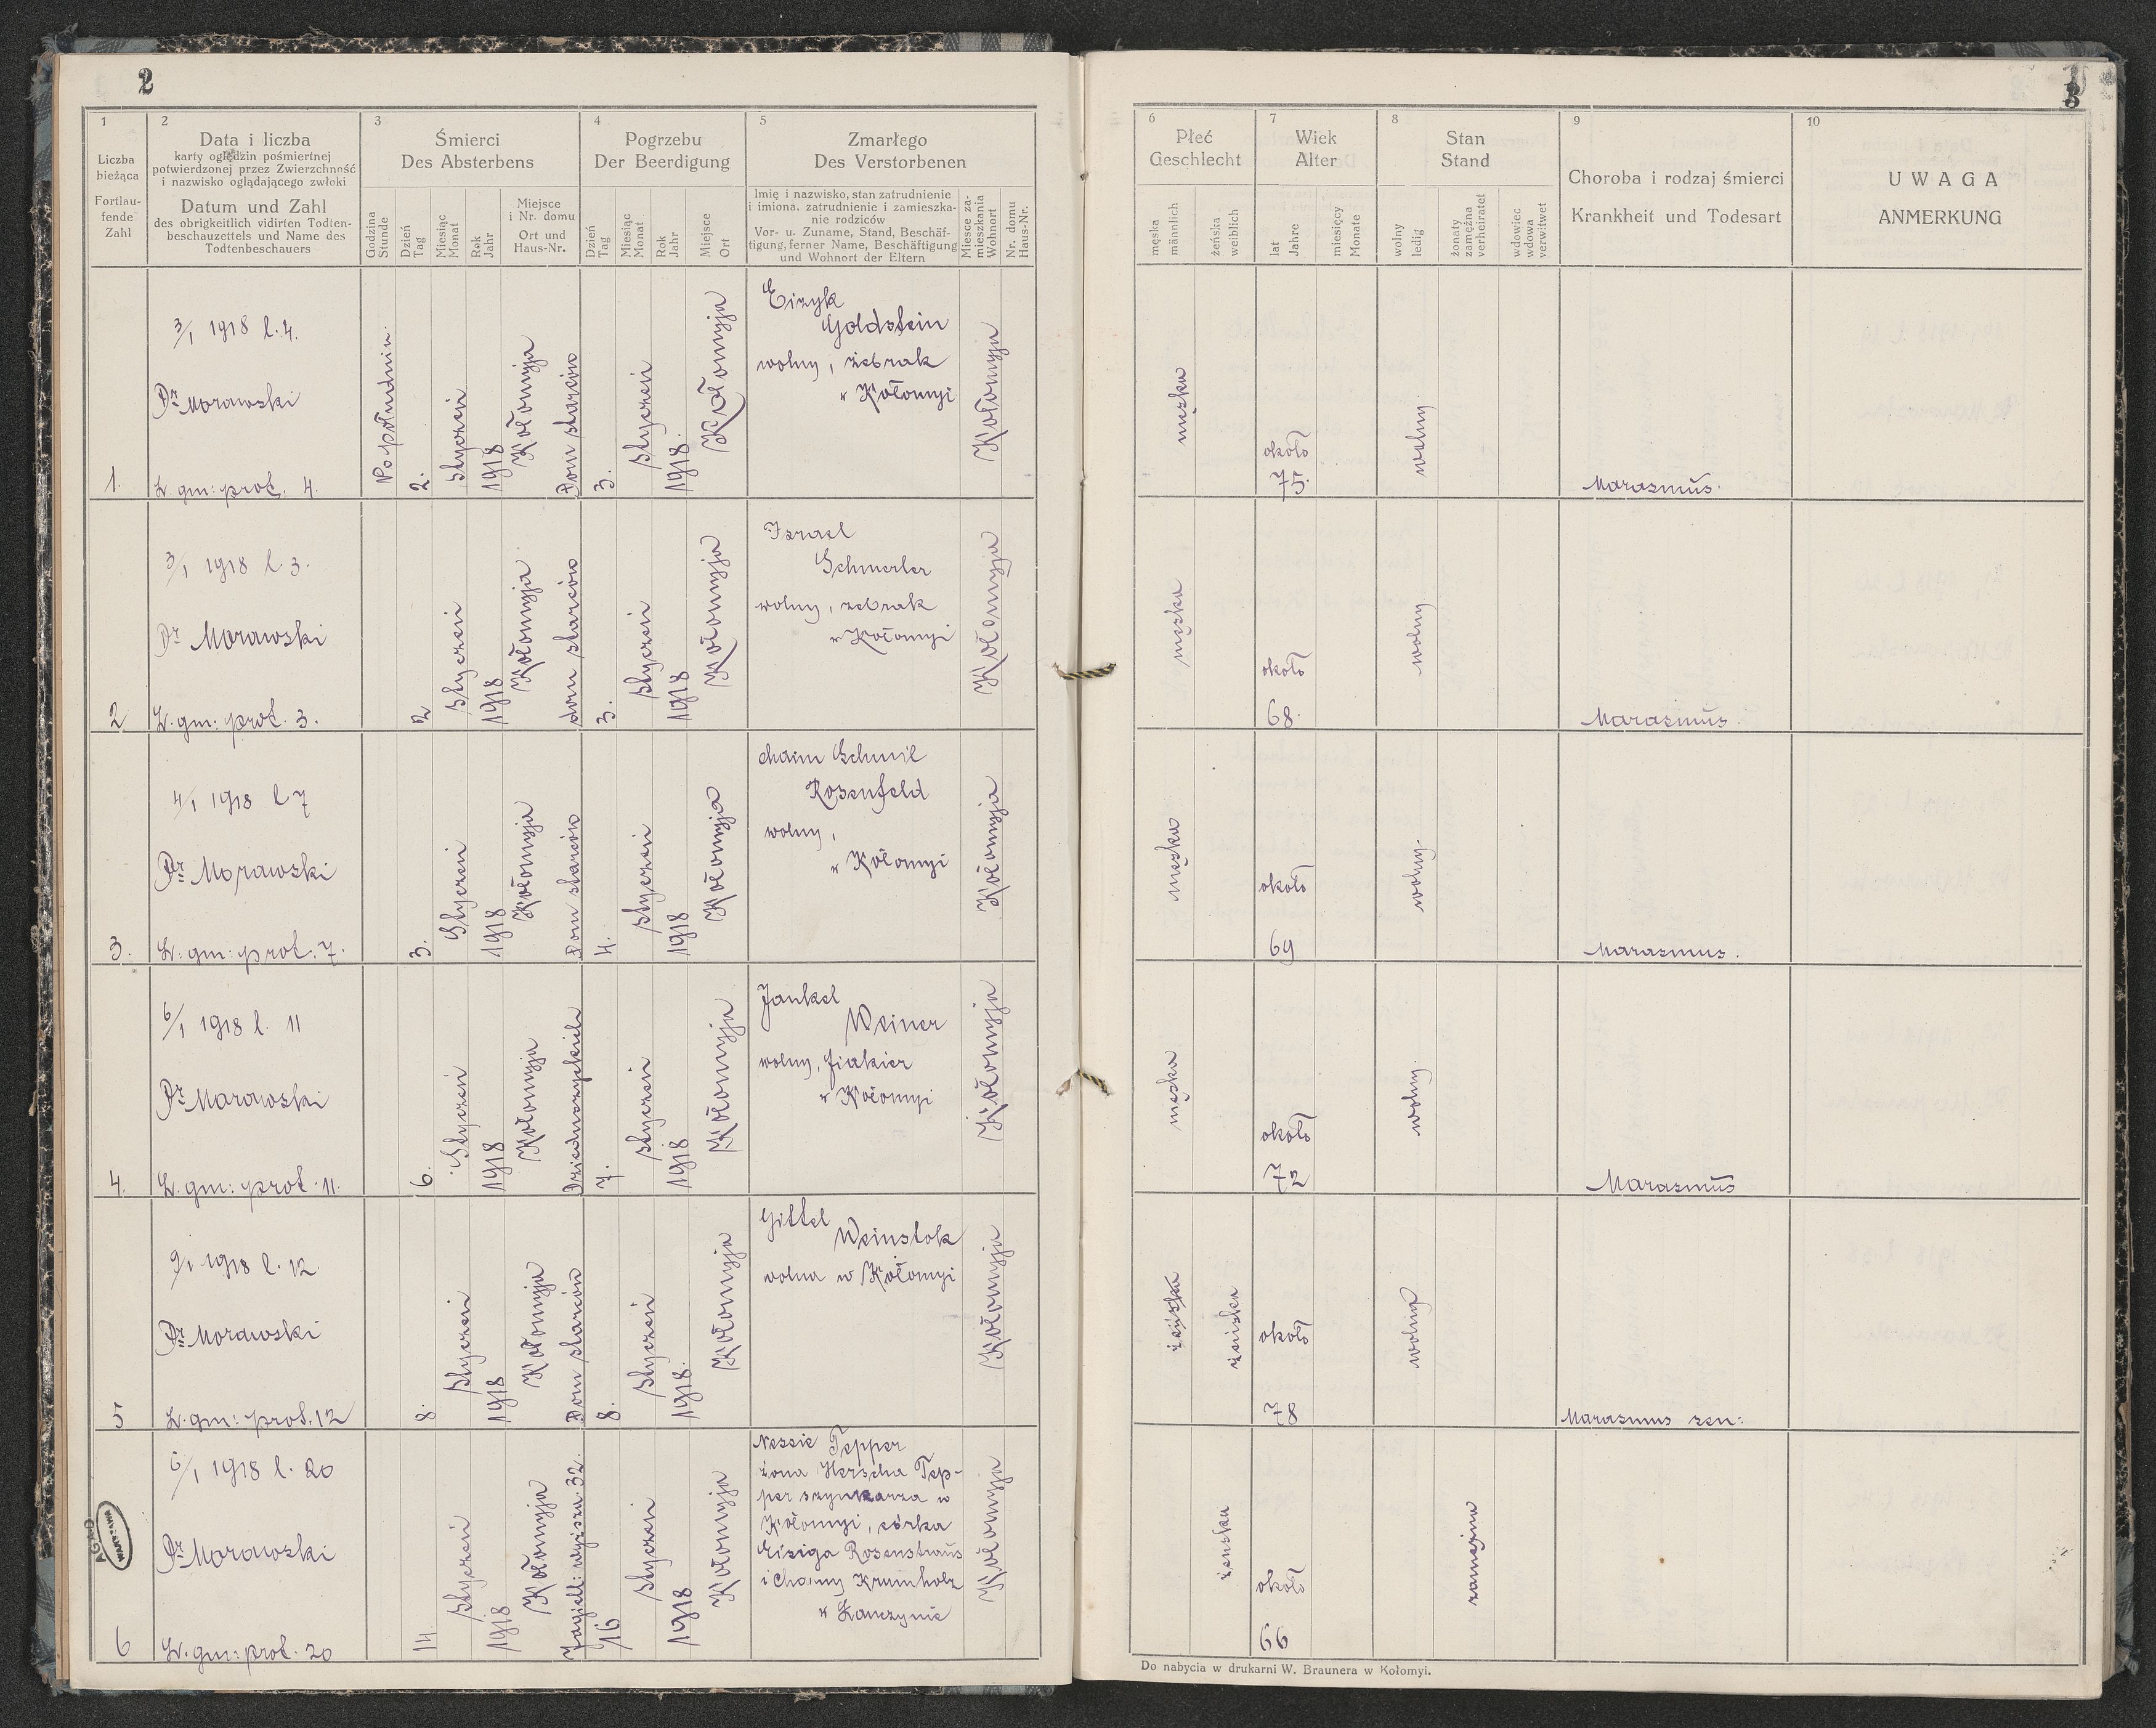 2
1
Liczba
bieżąca
Fortlau-
fende
Zahl
2
Data i liczba
karty oględzin pośmiertnej
potwierdzonej przez Zwierzchność
i nazwisko oglądającego zwłoki
Datum und Zahl
des obrigkeitlich vidirten Todten-
beschauzettels und Name des
Todtenbeschauers
3
Śmierci
Des Absterbens
Godzina
Stunde
Dzień
Tag
Miesiąc
Monat
Rok
Jahr
Miejsce
i Nr. domu
Ort und
Haus-Nr.
4
Pogrzebu
Der Beerdigung
Dzień
Tag
Miesiąc
Monat
Rok
Jahr
Miejsce
Ort
5
Zmarłego
Des Verstorbenen
Imię i nazwisko, stan zatrudnienie
i imiona. zatrudnienie i zamieszka-
nie rodziców
Vor- u. Zuname, Stand, Beschäf-
tigung, ferner Name, Beschäftigung
und Wohnort der Eltern
Miesce za-
mieszkania
Wohnort
Nr. domu
Haus-Nr.
1.
3/1 1918 l. 4.
Dr Morawski
L. gm: prot. 4.
Popołudniu.
2.
styczeń
1918
Kołomyja
Dom starców
3.
styczeń
1918.
Kołomyja
Eizyk
Goldstein
wolny, żebrak
w Kołomyi
Kołomyja
2
3/1 1918 l. 3.
Dr Morawski
L. gm: prot. 3.
2
styczeń
1918
Kołomyja
dom starców
3.
styczeń
1918
Kołomyja
Israel
Schmerler
wolny, żebrak
w Kołomyi
Kołomyja
3.
4/1 1918 l 7
Dr Morawski
L: gm: prot. 7.
3.
Styczeń
1918
Kołomyja
Dom starców
4.
styczeń
1918
Kołomyja
Chaim Schmil
Rosenfeld
wolny,
w Kołomyi
Kołomyja
4.
6/1 1918 l. 11
Dr Morawski
L. gm: prot. 11.
6.
Styczeń
1918
Kołomyja
Dzieduszyckich
7.
styczeń
1918
Kołomyja
Jankel
Weiner
wolny, fiakier
w Kołomyi
Kołomyja
5
9/1 1918 l. 12.
Dr Morawski
L. gm: prot. 12
8.
styczeń
1918
Kołomyja
Dom starców
8.
styczeń
1918.
Kołomyja
Gittel
Weinstok
wolna w Kołomyi
Kołomyja
6
1918 l. 20
Dr Morawski
L. gm: prot. 20
14
styczeń
1918
Kołomyja
Jagiell: wyższa. 32.
16
styczeń
1918
Kołomyja
Nessie Tepper
żona Herscha Tep-
per szynkarza w
Kołomyi, córka
Eisiga Rosenstraus
i Chany Krumholz
w Łanczynie
Kołomyja
AGAD
WARSZAWA
3
6
Płeć
Geschlecht
męska
männlich
żeńska
weiblich
7
Wiek
Alter
lat
Jahre
miesięcy
Monate
8
Stan
Stand
wolny
ledig
żonaty
zamężna
verheiratet
wdowiec
wdowa
verwitwet
9
Choroba i rodzaj śmierci
Krankheit und Todesart
10
UWAGA
ANMERKUNG
męska
około
75.
wolny
Marasmus.
męska
około
68.
wolny
Marasmus.
męska
około
69
wolny.
Marasmus.
męska
około
72
wolny
Marasmus
żeńska
żeńska
około
78
wolny
Marasmus sen:
żeńska
około
66
zamężna
Do nabycia w drukarni W. Braunera w Kołomyi.